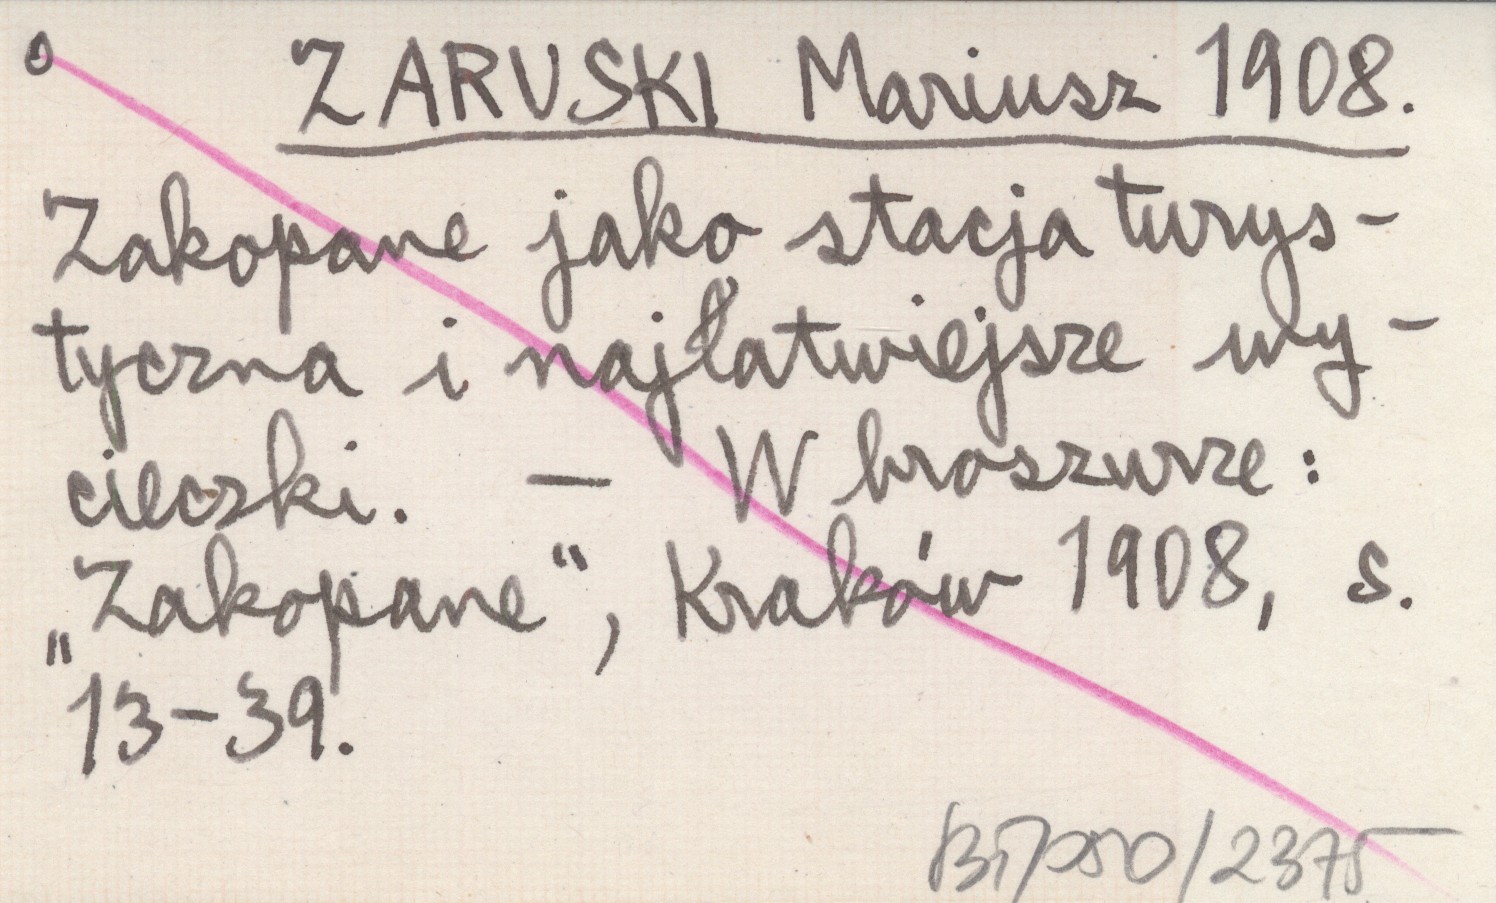 o ZARUSKI Mariusz 1908.
Zakopane jako stacja turys-
tyczna i najłatwiejsze wy-
cieczki. — W broszurze:
„Zakopane“, Kraków 1908, s.
13-39.
/2375